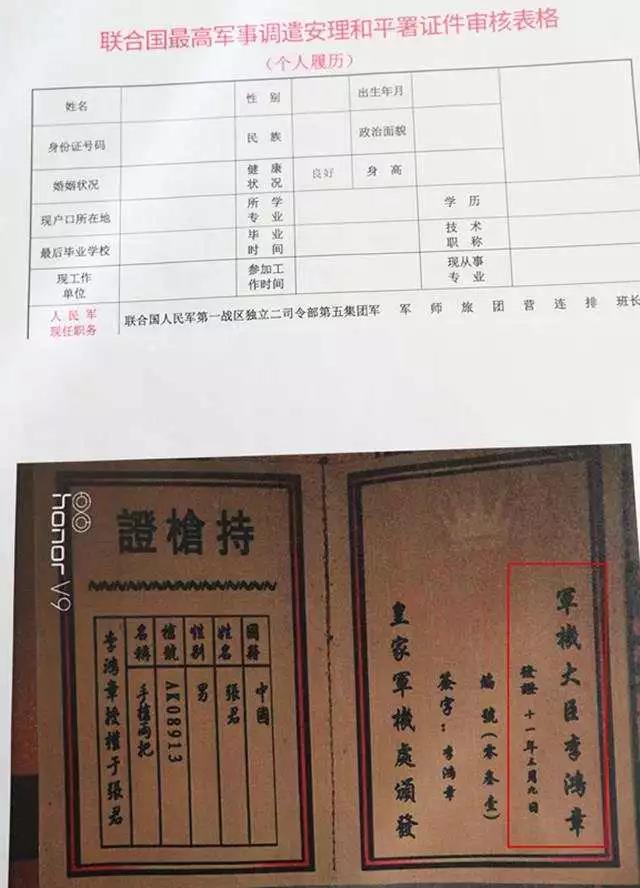 联合国最高军事调遣安理和平署证件审核表格
（个人履历）
姓名 性 别 出生年月
身份证号码 民 族 政治面貌
婚姻状况 健 康 状 况 良好 身 高
现户口所在地 所 学 专 业 学 历
最后毕业学校 毕 业 时 间 技 术 职 称
现工作 单位 参加工 作时间 现从事 专 业
人 民 军 现任职务 联合国人民军第一战区独立二司令部第五集团军 军 师 旅 团 营 连 排 班长
honor V9
持槍證
國籍 中國
姓名 張君
性别 男
槍號 AK08913
名稱 手槍兩把
李鴻章授權于張君
軍機大臣李鴻章
發證 十一年三月九日
編號(零叁壹)
簽字：李鴻章
皇家軍機處頒發